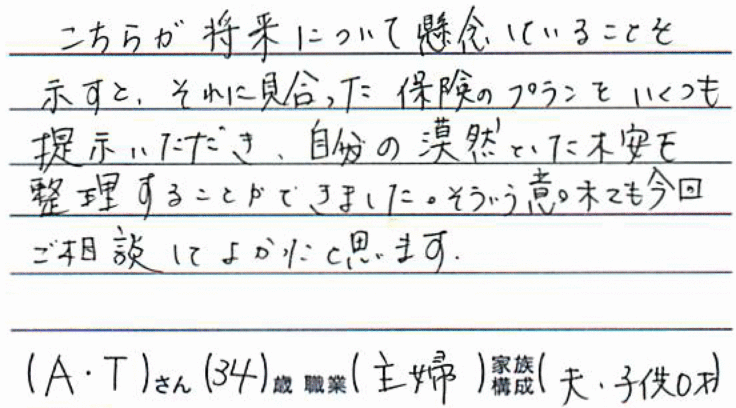 こちらが将来について懸念していることを
示すと、それに見合った保険のプランをいくつも
提示いただき、自分の漠然とした不安を
整理することができました。そういう意味でも今回
ご相談してよかったと思います.
(A・T)さん(34)歳 職業(主婦)家族構成(夫・子供0才)